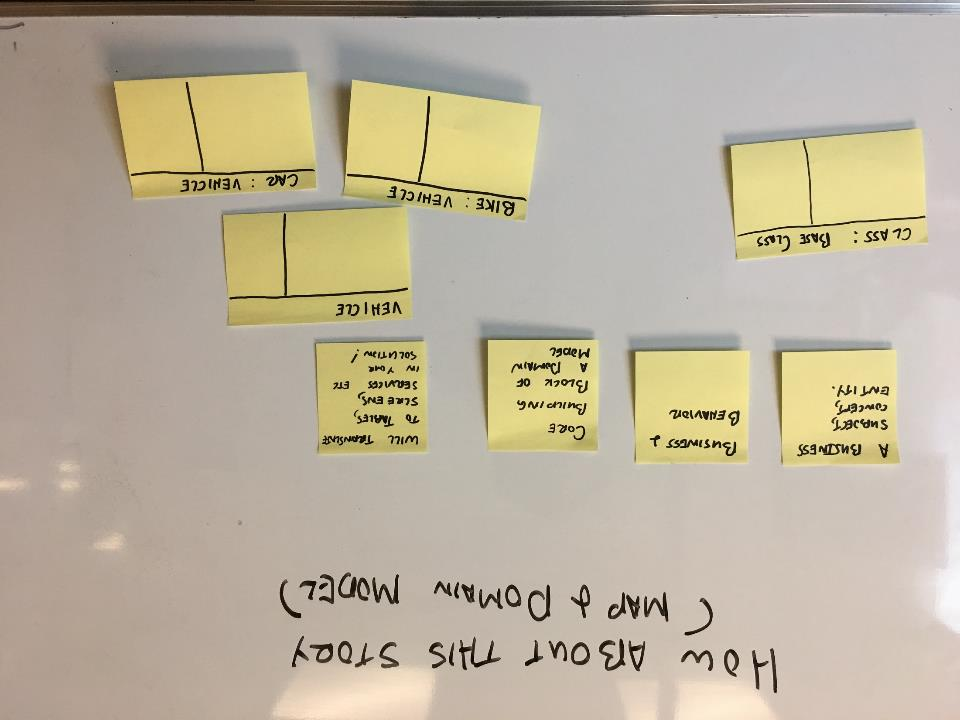 HOW ABOUT THIS STORY
( MAP & DOMAIN MODEL)
A BUSINESS
SUBJECT,
CONCEPT,
ENTITY.
BUSINESS &
BEHAVIOR
CORE
BUILDING
BLOCK OF
A DOMAIN
MODEL
WILL TRANSLATE
TO TABLES,
SCREENS,
SERVICES ETC
IN YOUR
SOLUTION!
CLASS: BASE CLASS
VEHICLE
BIKE: VEHICLE
CAR: VEHICLE